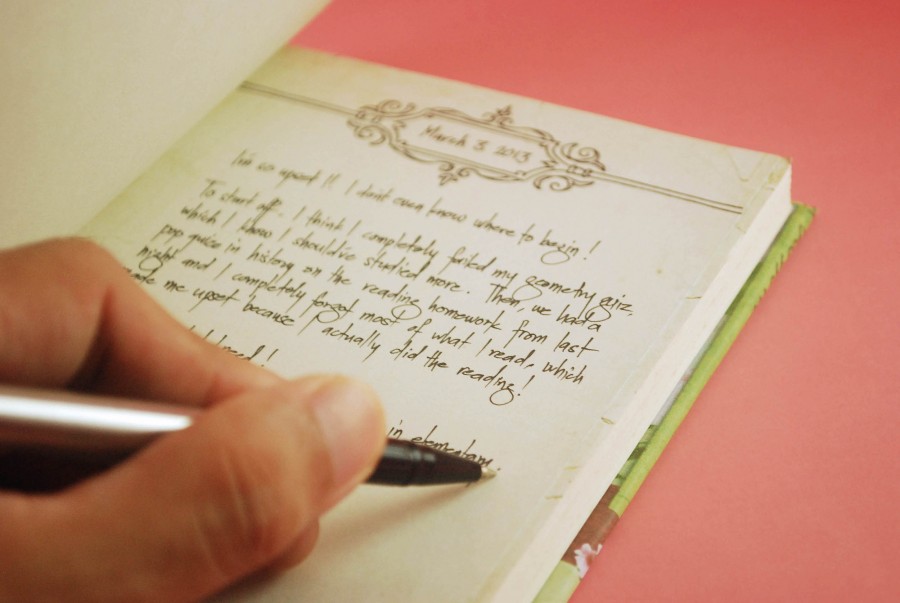 March 3 2013
I'm so upset!! I don't even know where to begin!
To start off, I think I completely failed my geometry quiz,
which I know I should've studied more. Then, we had a
pop quiz in history on the reading homework from last
night and I completely forgot most of what I read, which
made me upset because I actually did the reading!
in elementary.